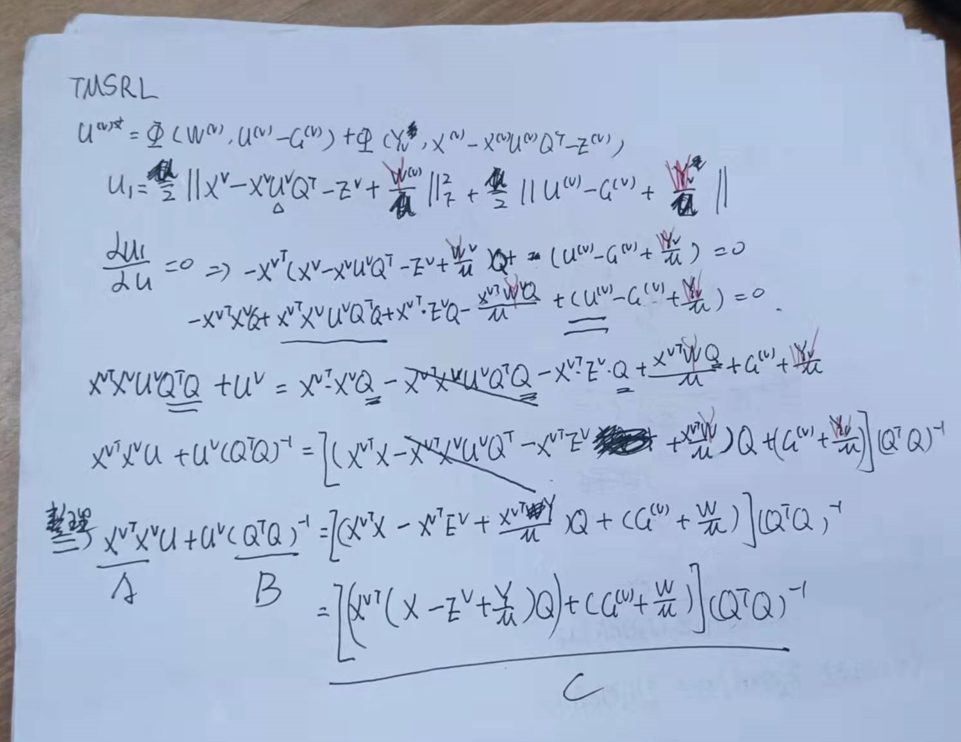 TMSRL
U^{(v)*} = Φ(W^{(v)}, U^{(v)} - G^{(v)}) + Φ(Y_v, X^{(v)} - X^{(v)}U^{(v)}Q^T - Z^{(v)},
U_1 = /2 ||X^v - X^vU^vQ^T - Z^v + W^{(v)}/ ||^2 + /2 ||U^{(v)} - G^{(v)} + / ||
∂U_1/∂U = 0 ⇒ -X^{vT}(X^v - X^vU^vQ^T - Z^v + W^v/μ)Q + (U^{(v)} - G^{(v)} + Y_v/μ) = 0
-X^{vT}X^vQ + X^{vT}X^vU^vQ^TQ + X^{vT}·Z^vQ - X^{vT}W^vQ/μ + (U^{(v)} - G^{(v)} + Y_v/μ) = 0.
X^{vT}X^vU^vQ^TQ + U^v = X^{vT}·X^vQ - X^{vT}X^vU^vQ^TQ - X^{vT}Z^v·Q + X^{vT}WQ/μ + G^{(v)} + Y_v/μ
X^{vT}X^vU + U^v(Q^TQ)^{-1} = [(X^{vT}X - X^{vT}X^vU^vQ^T - X^{vT}Z^v + X^{vT}W/μ)Q + (G^{(v)} + Y_v/μ)](Q^TQ)^{-1}
整理 X^{vT}X^vU + U^v(Q^TQ)^{-1} = [(X^{vT}X - X^{vT}E^v + X^{vT}Y/μ)Q + (G^{(v)} + W/μ)](Q^TQ)^{-1}
A B = [(X^{vT}(X - Z^v + Y/μ)Q) + (G^{(v)} + W/μ)](Q^TQ)^{-1}
C